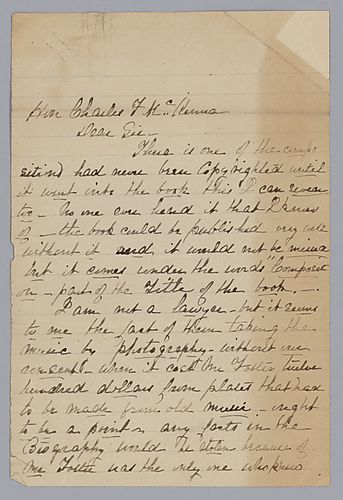 Hon Charles F McKenna
Dear Sir -
There is one of the comp
sitions had never been Copyrighted until
it went into the book this I can swear
to - No one ever heard it that I know
of - the book could be published very well
without it and it would not be missed
but it comes under the words "Composit
on - part of the Title of the book -
I am not a lawyer - but it seems
to me the fact of them taking the
music by photography - without our
consent - when it cost Mr Foster twelve
hundred dollars from plates that had
to be made from old music - ought
to be a point & any facts in the
Biography would be stolen because
Mr Foster was the only one who knew